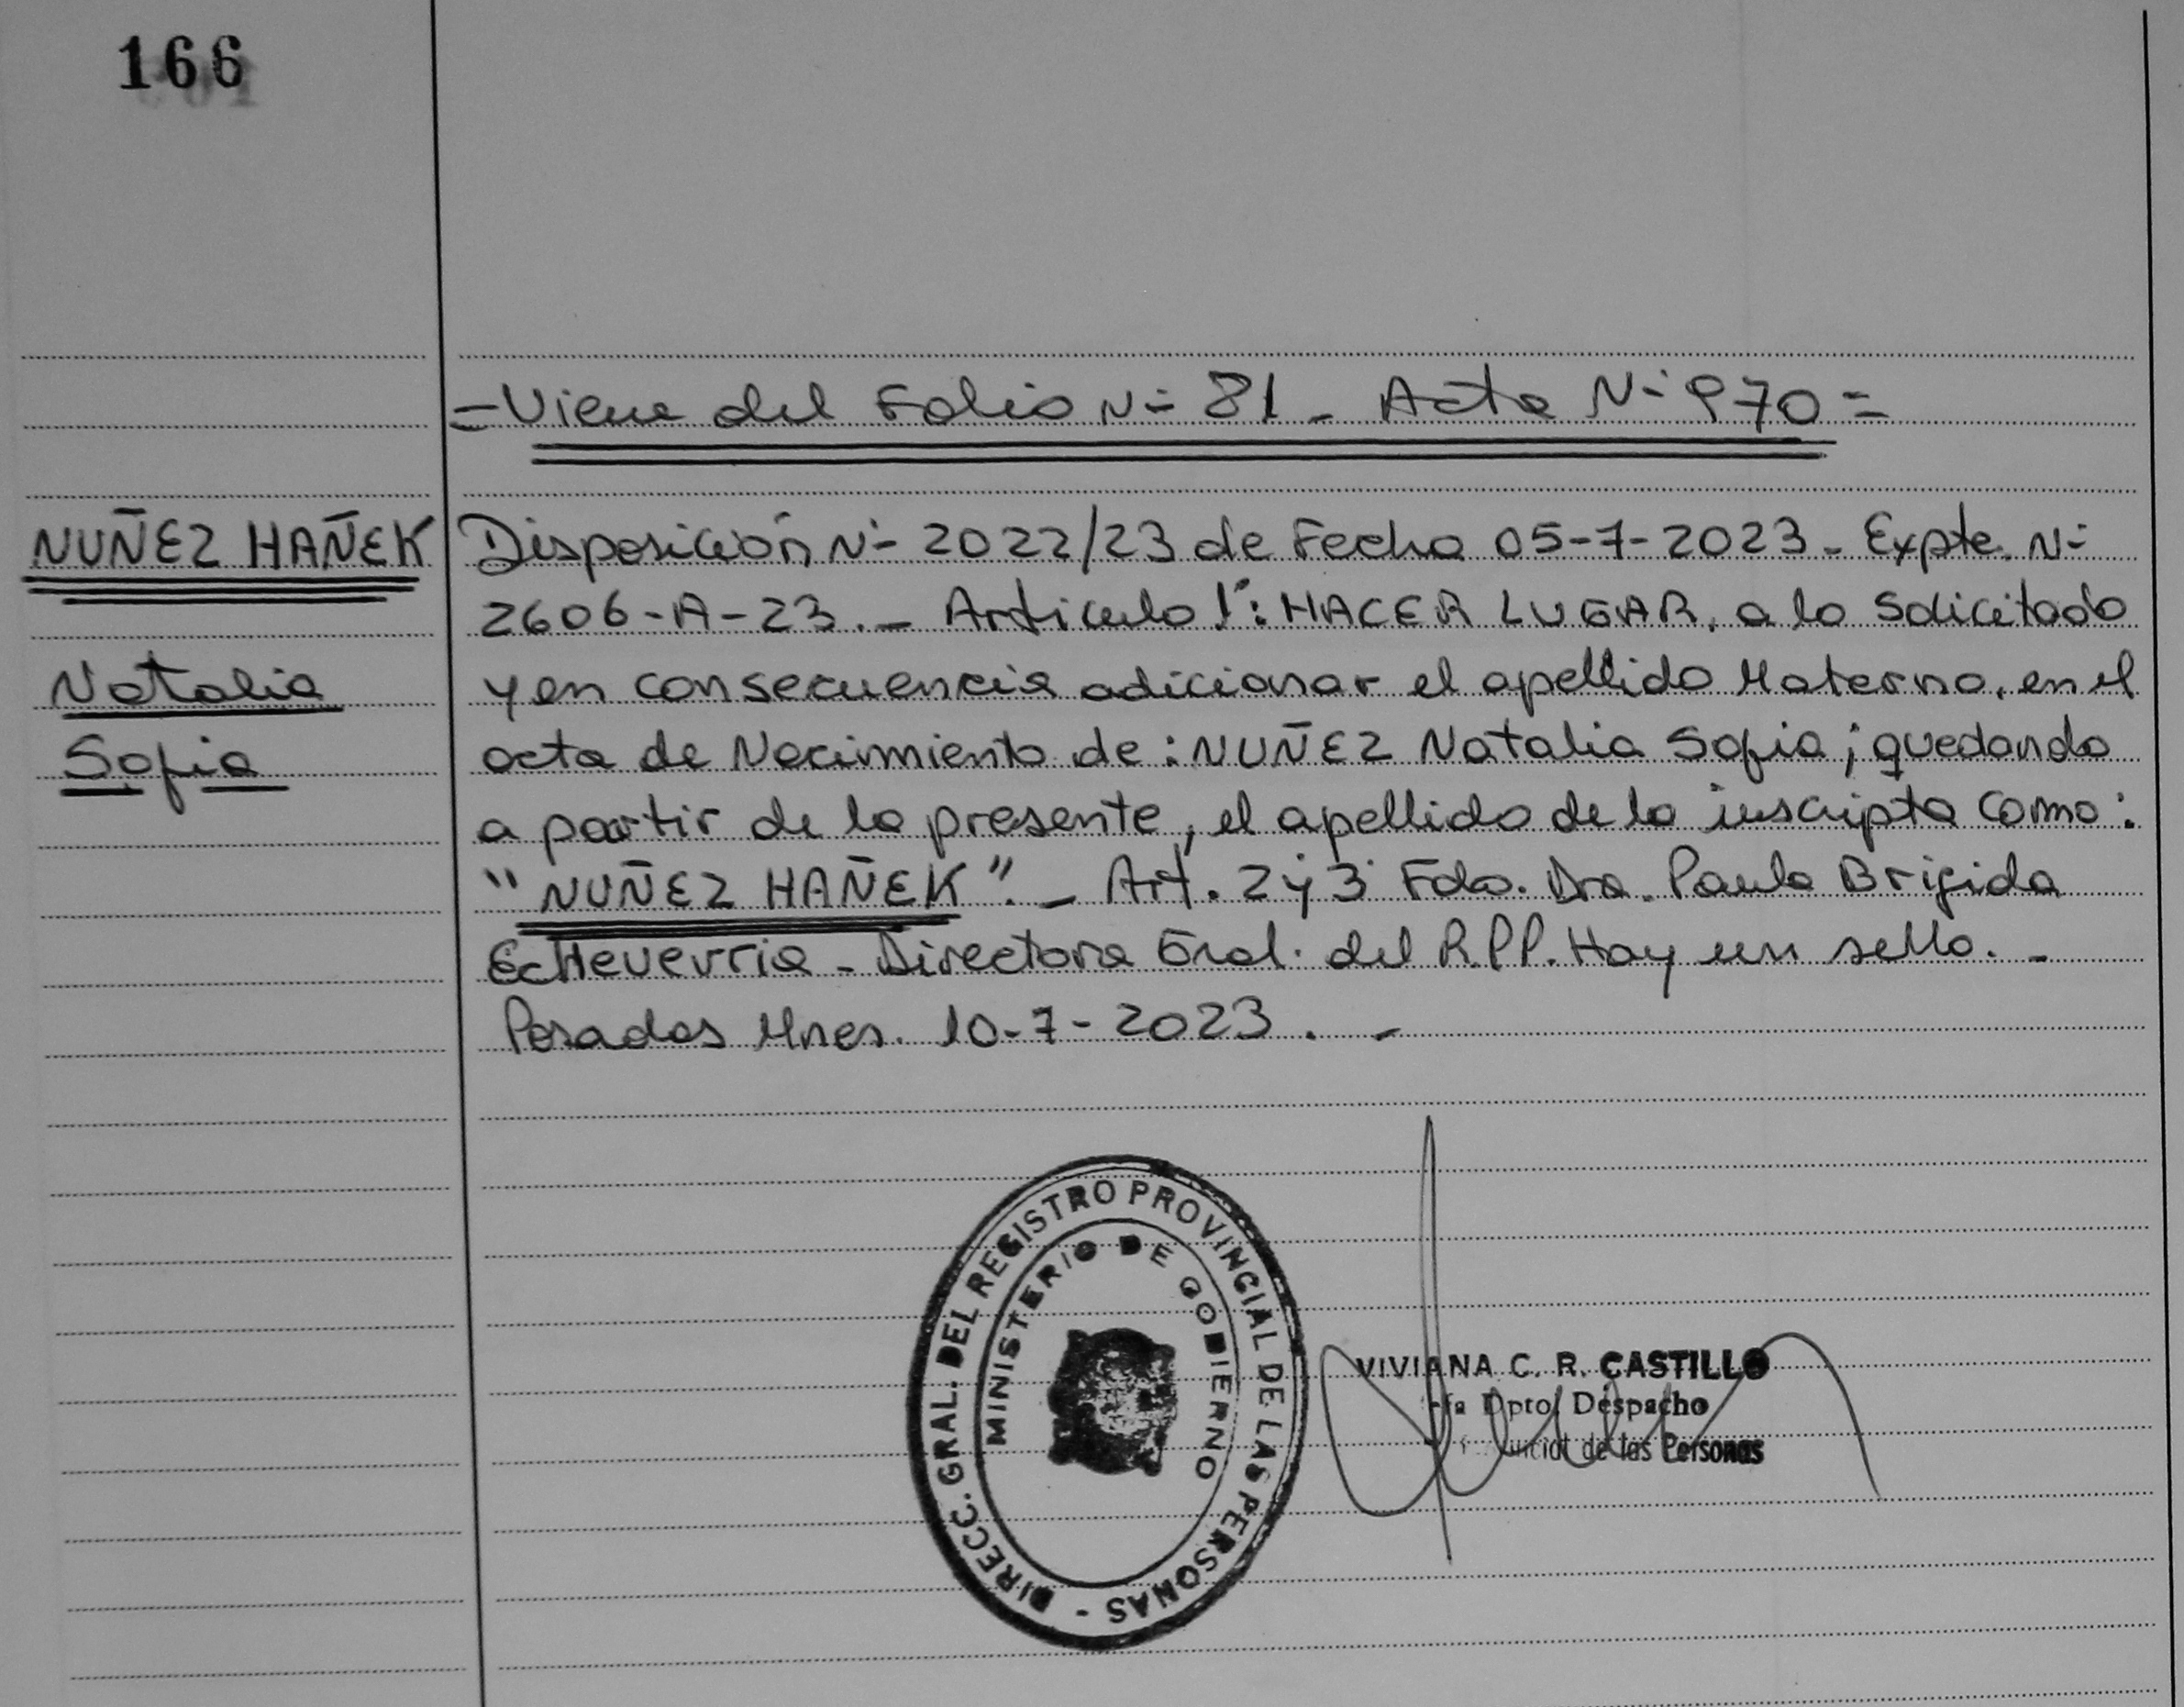 166
=Viene del Folio N- 81 - Acta N- 970=
NUÑEZ HAÑEK
Natalia
Sofia
Disposición N- 2022/23 de Fecha 05-7-2023- Expte. N-
2606-A-23.- Articulo 1°: HACER LUGAR, a lo solicitado
y en consecuencia adicionar el apellido Materno, en el
acta de Nacimiento de: NUÑEZ Natalia Sofia; quedando
a partir de la presente, el apellido de la inscripta como:
"NUÑEZ HAÑEK".- Art. 2 y 3 Fdo. Dra. Paula Brigida
Echeverria - Directora Gral. del R.P.P. Hay un sello.-
Posadas Mnes. 10-7-2023.-
DIRECC. GRAL. DEL REGISTRO PROVINCIAL DE LAS PERSONAS -
MINISTERIO DE GOBIERNO
VIVIANA C. R. CASTILLO
Dpto. Despacho
de las Personas